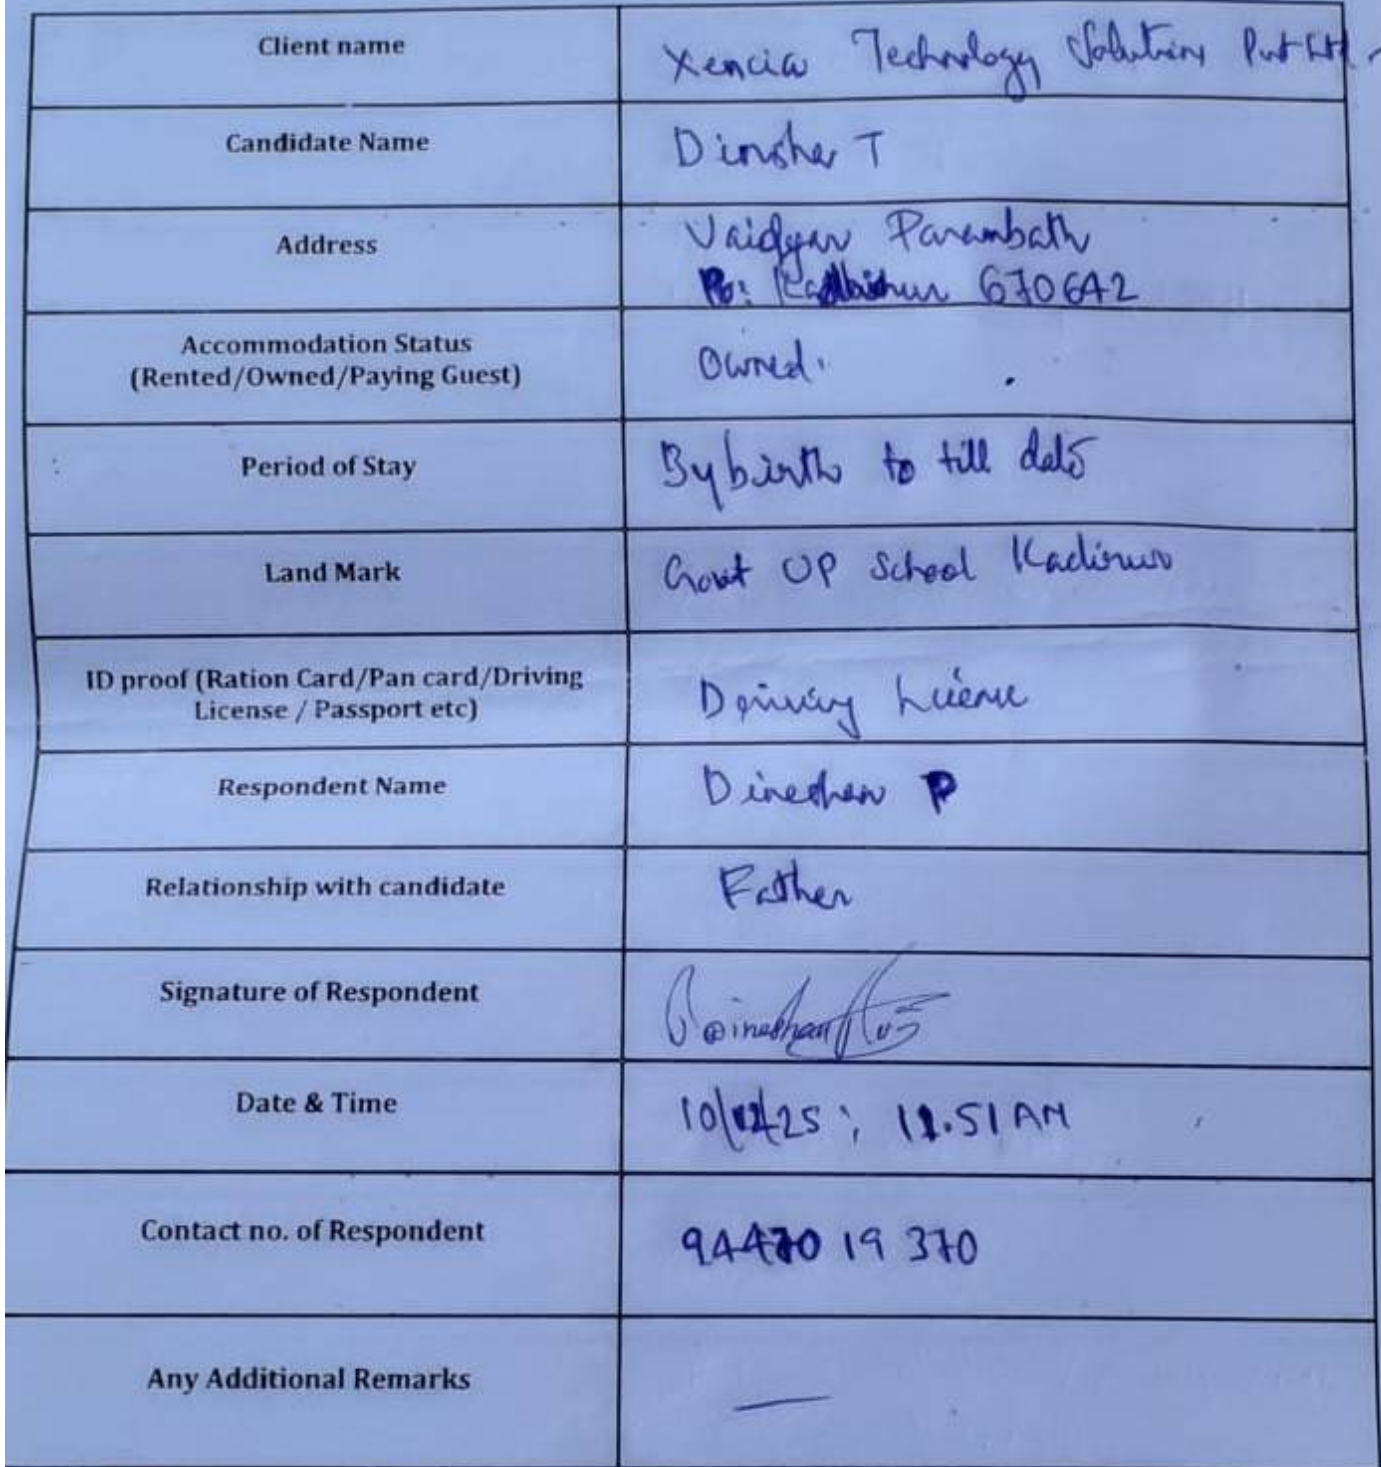 Client name
Xencia Technology Solutions Pvt Ltd
Candidate Name
Dinsha T
Address
Vaidyar Parambath
Po: 670642
Accommodation Status
(Rented/Owned/Paying Guest)
Owned.
Period of Stay
By birth to till date
Land Mark
Govt UP School Kadirur
ID proof (Ration Card/Pan card/Driving
License / Passport etc)
Driving License
Respondent Name
Dineshan P
Relationship with candidate
Father
Signature of Respondent
Dineshan
Date & Time
10/12/25; 11.51 AM
Contact no. of Respondent
94470 19 370
Any Additional Remarks
—